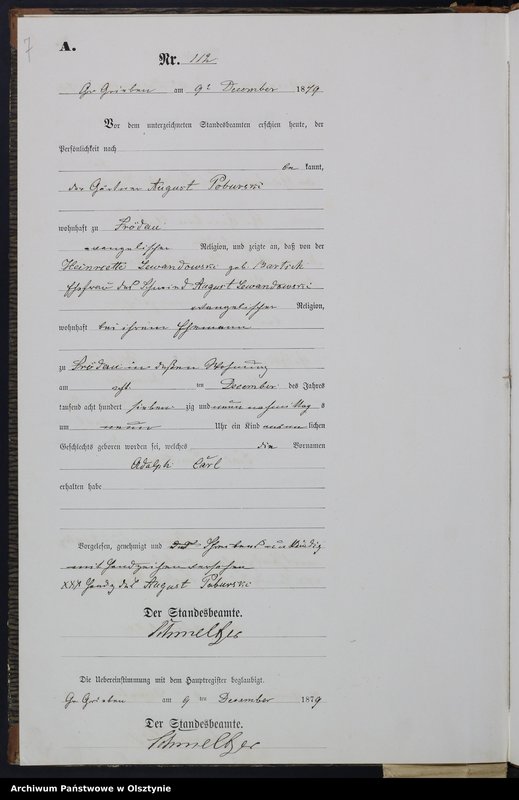 7
A.
Nr. 112.
Gr Grieben am 9t December 1879
Vor dem unterzeichneten Standesbeamten erschien heute, der
Persönlichkeit nach
be kannt,
der Gärtner August Poburski
wohnhaft zu Srödau
evangelischer Religion, und zeigte an, daß von der
Heinrette Lewandowski geb Bartsch
Ehefrau des Schmied August Lewandowski
evangelischer Religion,
wohnhaft bei ihrem Ehemann
zu Srödau in dessen Wohnung
am acht ten December des Jahres
tausend acht hundert sieben zig und neun nachmittag s
um neun Uhr ein Kind männ lichen
Geschlechts geboren worden sei, welches die Vornamen
Adolph Carl
erhalten habe
Vorgelesen, genehmigt und des Schreibens unkundig
mit Handzeichen versehen
XXX Handz des August Poburski
Der Standesbeamte.
Schmeltzer
Die Uebereinstimmung mit dem Hauptregister beglaubigt.
Gr Grieben am 9 ten December 1879
Der Standesbeamte.
Schmeltzer
Archiwum Państwowe w Olsztynie